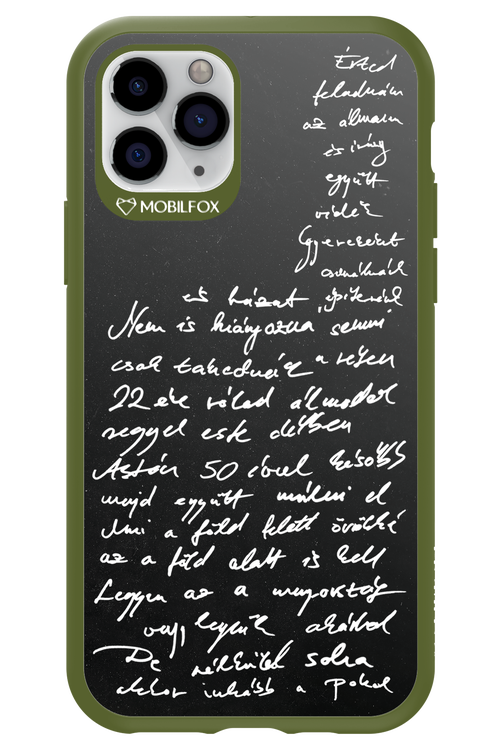 MOBILFOX
Érted
feladnám
az álmaim
és így
együtt
Gyerekeket
csinálnánk
és házat építenénk
Nem is hiányozna semmi
csak takednéz a réten
22 éve rólad álmodok
reggel este délben
Aztán 50 évvel később
majd együtt múlni el
Ami a föld felett örökké
az a föld alatt is kell
Legyen az a mennyország
vagy legyünk akárhol
De nélküled soha
akkor inkább a Pokol